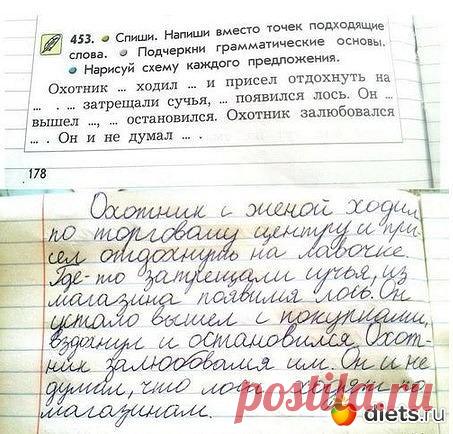 453. • Спиши. Напиши вместо точек подходящие
слова. • Подчеркни грамматические основы.
• Нарисуй схему каждого предложения.
Охотник ... ходил ... и присел отдохнуть на
... . ... затрещали сучья, ... появился лось. Он ...
вышел ..., ... остановился. Охотник залюбовался
... . Он и не думал ... .
178
Охотник с женой ходил
по торговому центру и при-
сел отдохнуть на лавочке.
Где-то затрещали сучья, из
магазина появился лось. Он
устало вышел с покупками,
вздогнул и остановился. Охот-
ник залюбовался им. Он и не
думал, что лоси ходят по
магазинам.
postila.ru
diets.ru